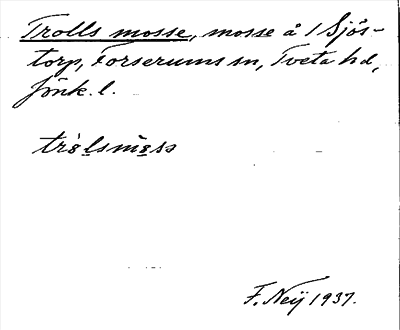 Trolls mosse, mosse å 1 Sjös-
torp, Forserums sn, Tveta hd,
Jönk. l.
trò̱lsmò̱ss
F. Neij 1937.